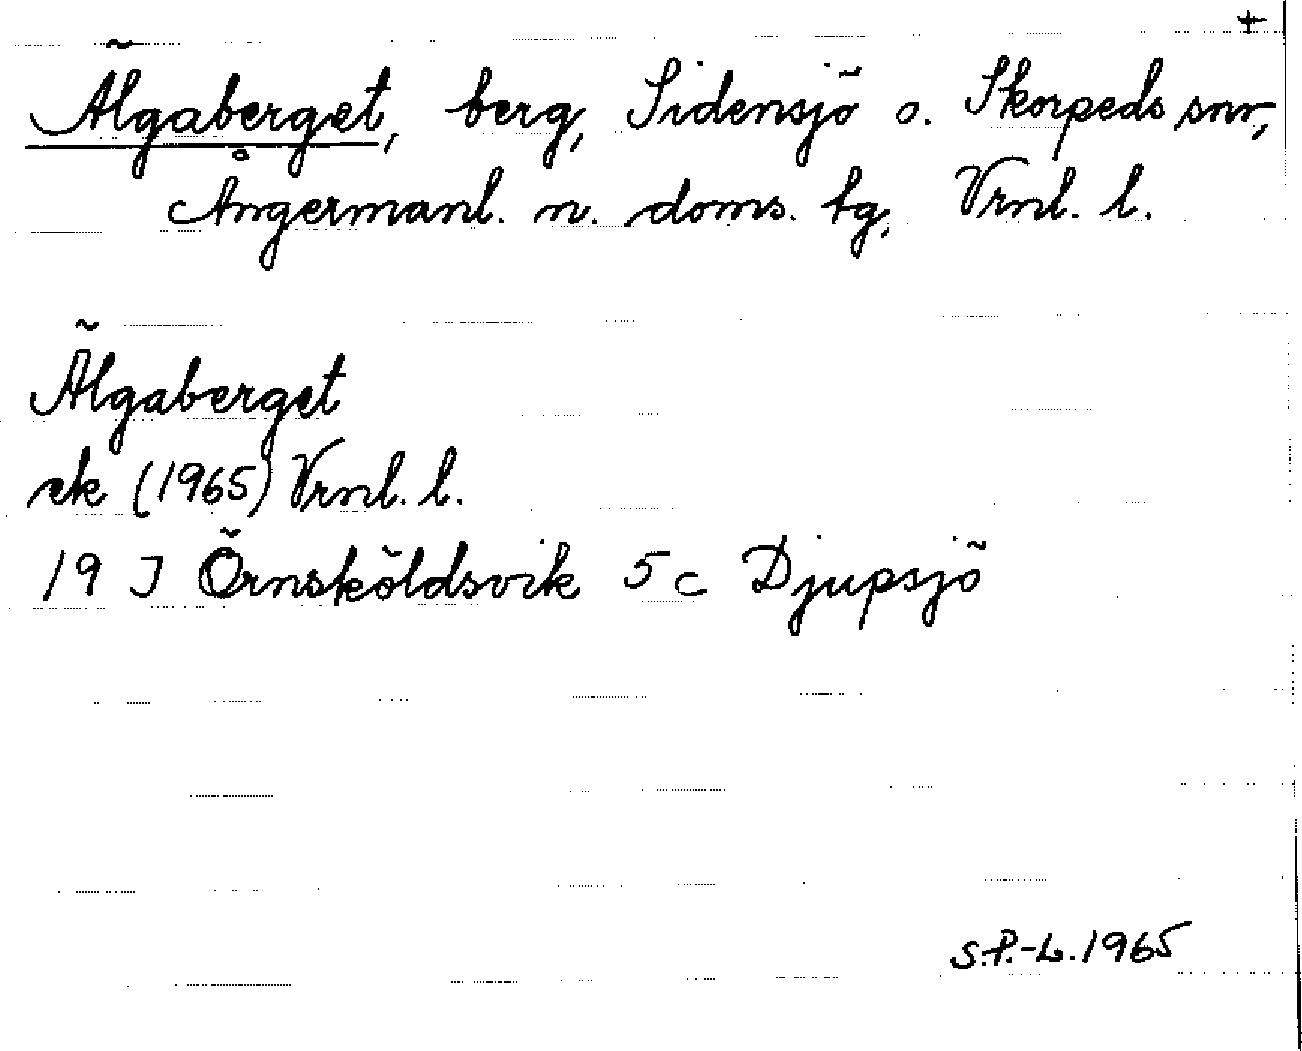 +
Älgaberget, berg, Sidensjö o. Skorpeds snr,
Ångermanl. n. doms. tg, Vrnl. l.
Älgaberget
ek (1965) Vrnl. l.
19 J Örnsköldsvik 5 c Djupsjö
S.P.-L. 1965